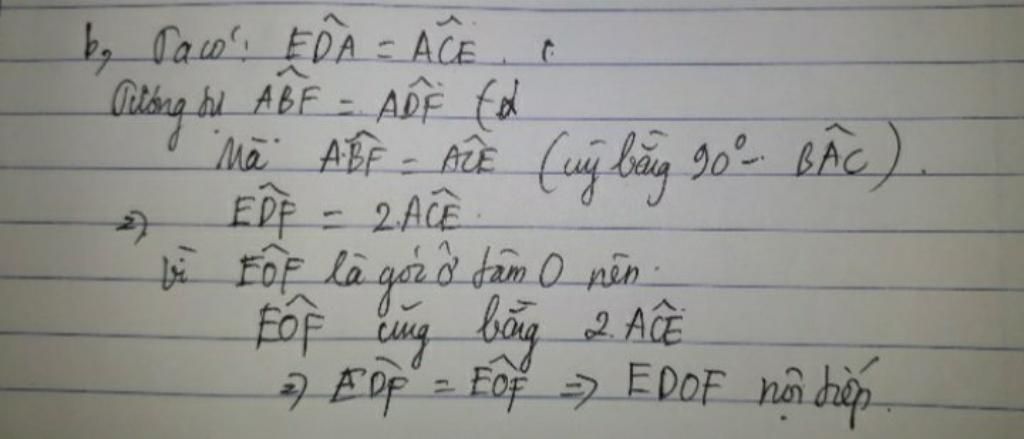 b, Ta có: EDA^ = ACE^.
Tương tự ABF^ = ADF^ (
Mà ABF^ = ACE^ (cùng bằng 90° - BAC^).
=> EDF^ = 2.ACE^.
Vì EOF^ là góc ở tâm O nên.
EOF^ cũng bằng 2.ACE^
=> EDF^ = EOF^ => EDOF nội tiếp.